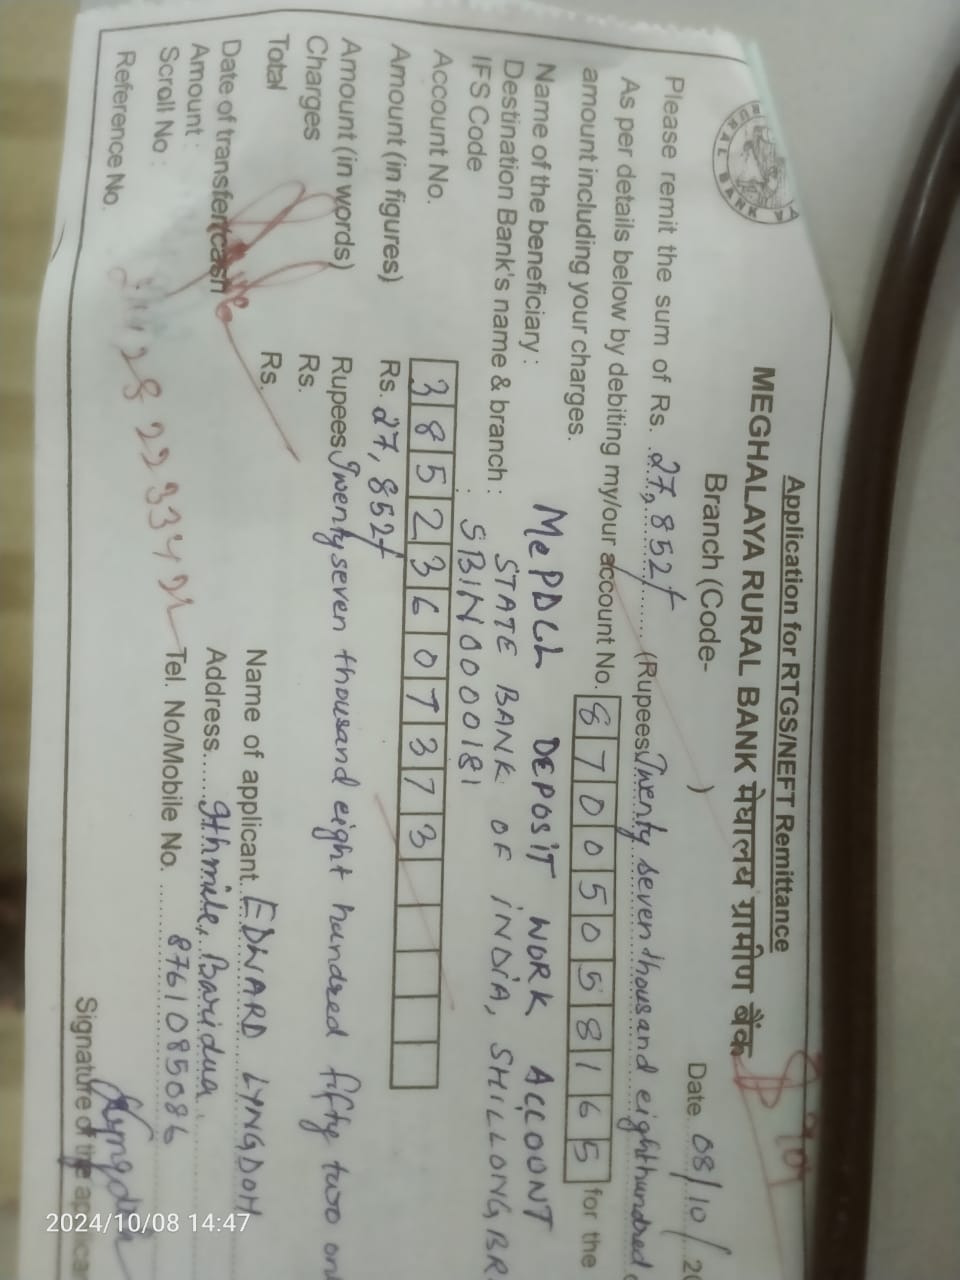 Application for RTGS/NEFT Remittance
MEGHALAYA RURAL BANK मेघालय ग्रामीण बैंक
Branch (Code- )
Date 08/10/20
Please remit the sum of Rs. 27,852/- (Rupees Twenty seven thousand eight hundred
As per details below by debiting my/our account No. 87005058165 for the
amount including your charges.
Name of the beneficiary: MePDCL DEPOSIT WORK ACCOUNT
Destination Bank's name & branch: STATE BANK OF INDIA, SHILLONG, BR.
IFS Code : SBIN0000181
Account No. 38523607373
Amount (in figures) Rs. 27,852/-
Amount (in words) Rupees Twenty seven thousand eight hundred fifty two only
Charges Rs.
Total Rs.
Date of transfer(cash
Amount :
Scroll No :
Reference No.
Name of applicant EDWARD LYNGDOH
Address 9thmile, Baridua
Tel. No/Mobile No. 8761085086
Signature of the applicant
2024/10/08 14:47